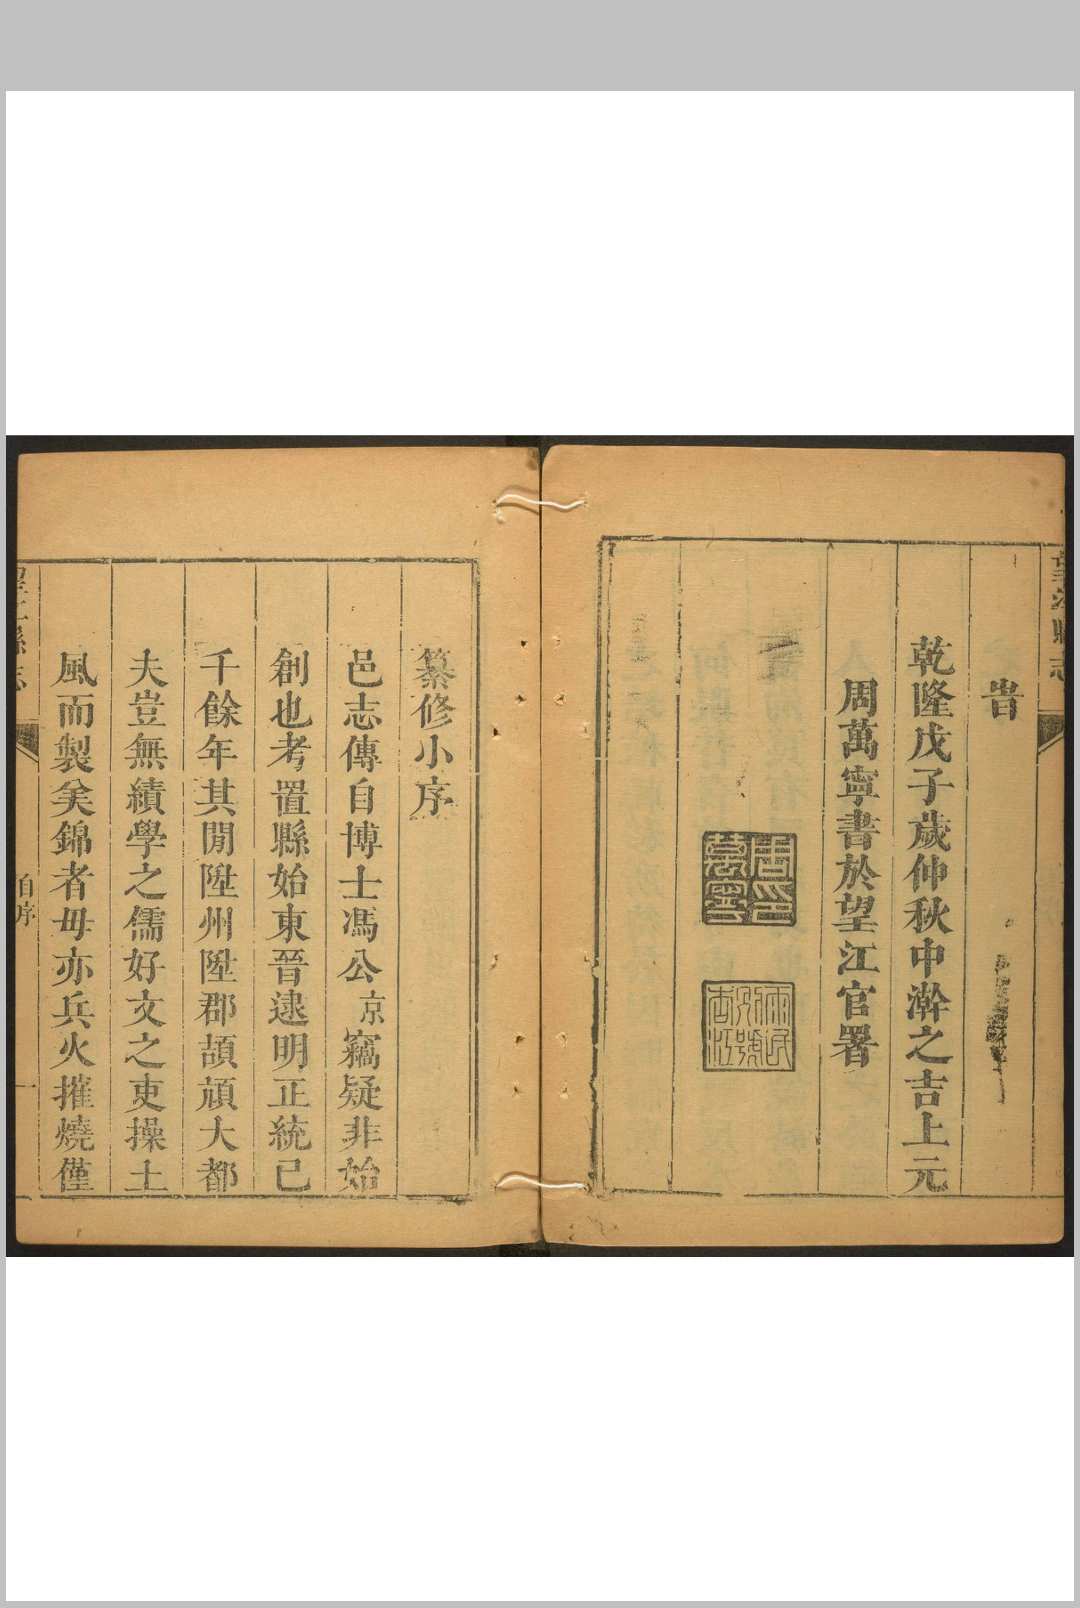 望江縣志
旹
乾隆戊子歲仲秋中澣之吉上元
周萬寧書於望江官署
周萬寧印
纂修小序
邑志傳自博士馮公京竊疑非始
創也考置縣始東晉逮明正統已
千餘年其閒陞州陞郡頡頏大都
夫豈無績學之儒好文之吏操土
風而製美錦者毋亦兵火摧燒僅
望江縣志
自序
一